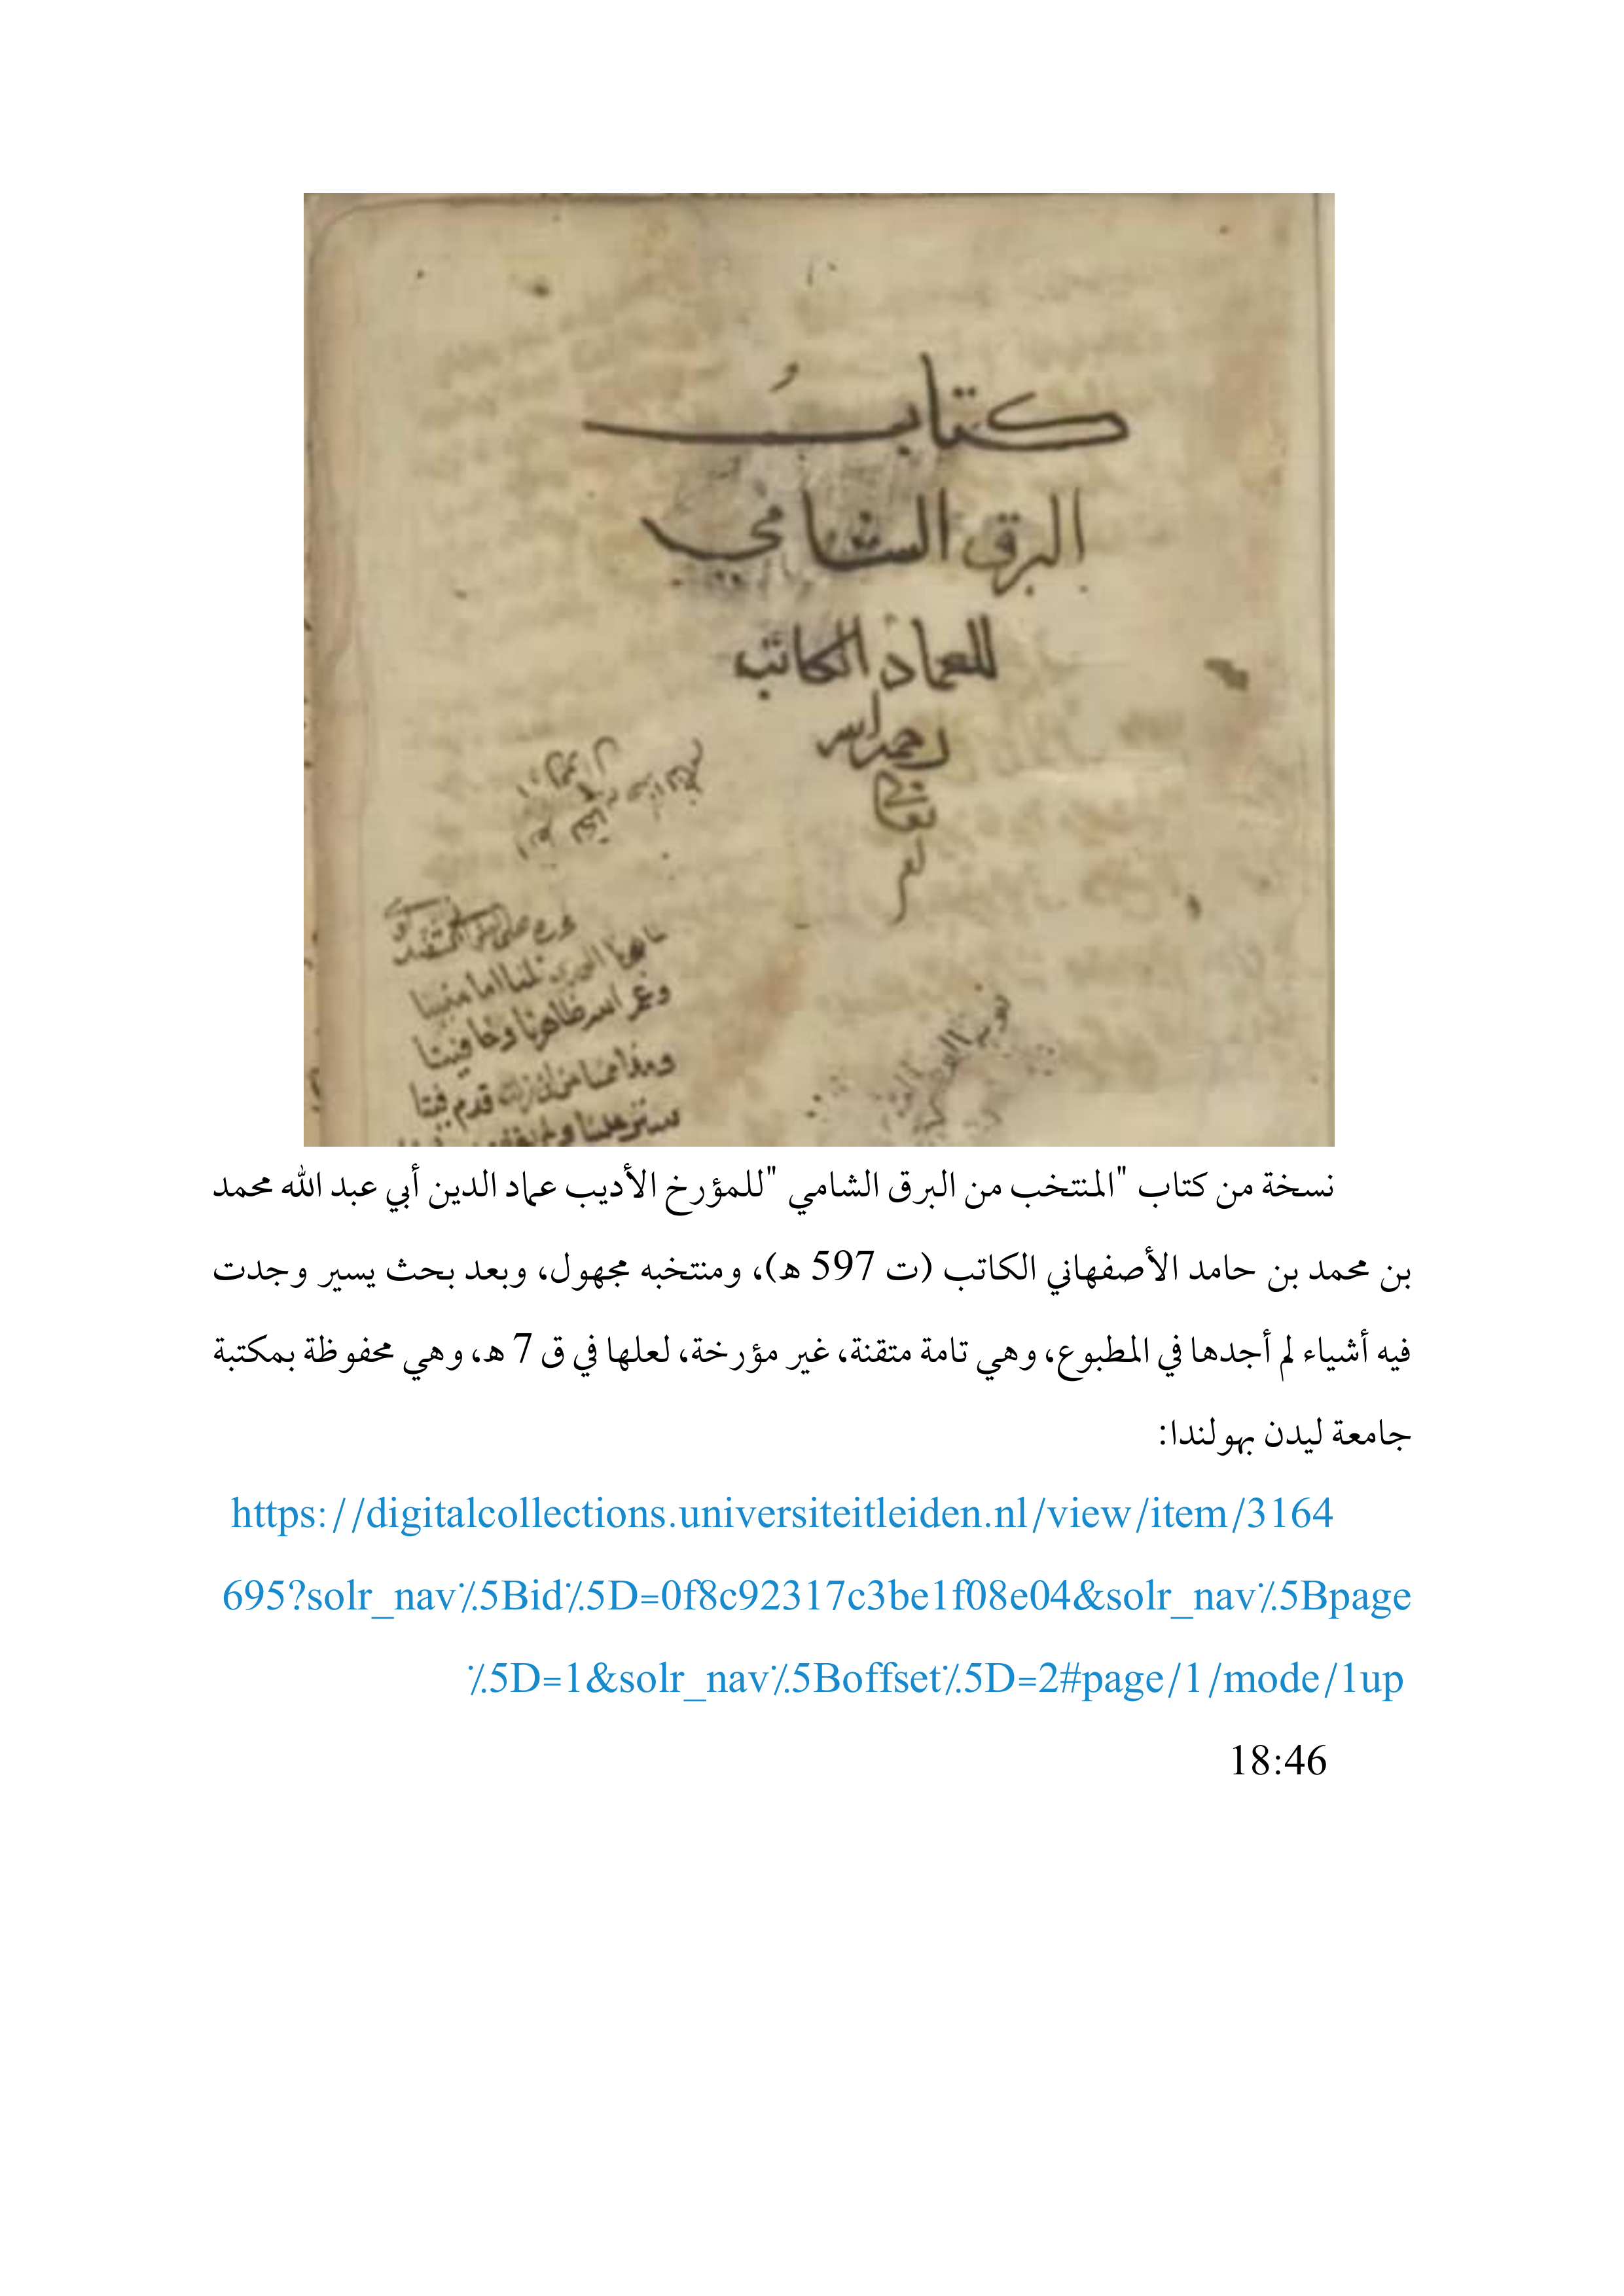 كتاب
البرق الشامي
للعماد الكاتب
رحمه الله
تعالى
وغفر الله ظاهرنا وخافينا
نسخة من كتاب "المنتخب من البرق الشامي "للمؤرخ الأديب عماد الدين أبي عبد الله محمد
بن محمد بن حامد الأصفهاني الكاتب (ت 597 ه)، ومنتخبه مجهول، وبعد بحث يسير وجدت
فيه أشياء لم أجدها في المطبوع، وهي تامة متقنة، غير مؤرخة، لعلها في ق 7 ه، وهي محفوظة بمكتبة
جامعة ليدن بهولندا:
https://digitalcollections.universiteitleiden.nl/view/item/3164
695?solr_nav٪5Bid٪5D=0f8c92317c3be1f08e04&solr_nav٪5Bpage
٪5D=1&solr_nav٪5Boffset٪5D=2#page/1/mode/1up
18:46